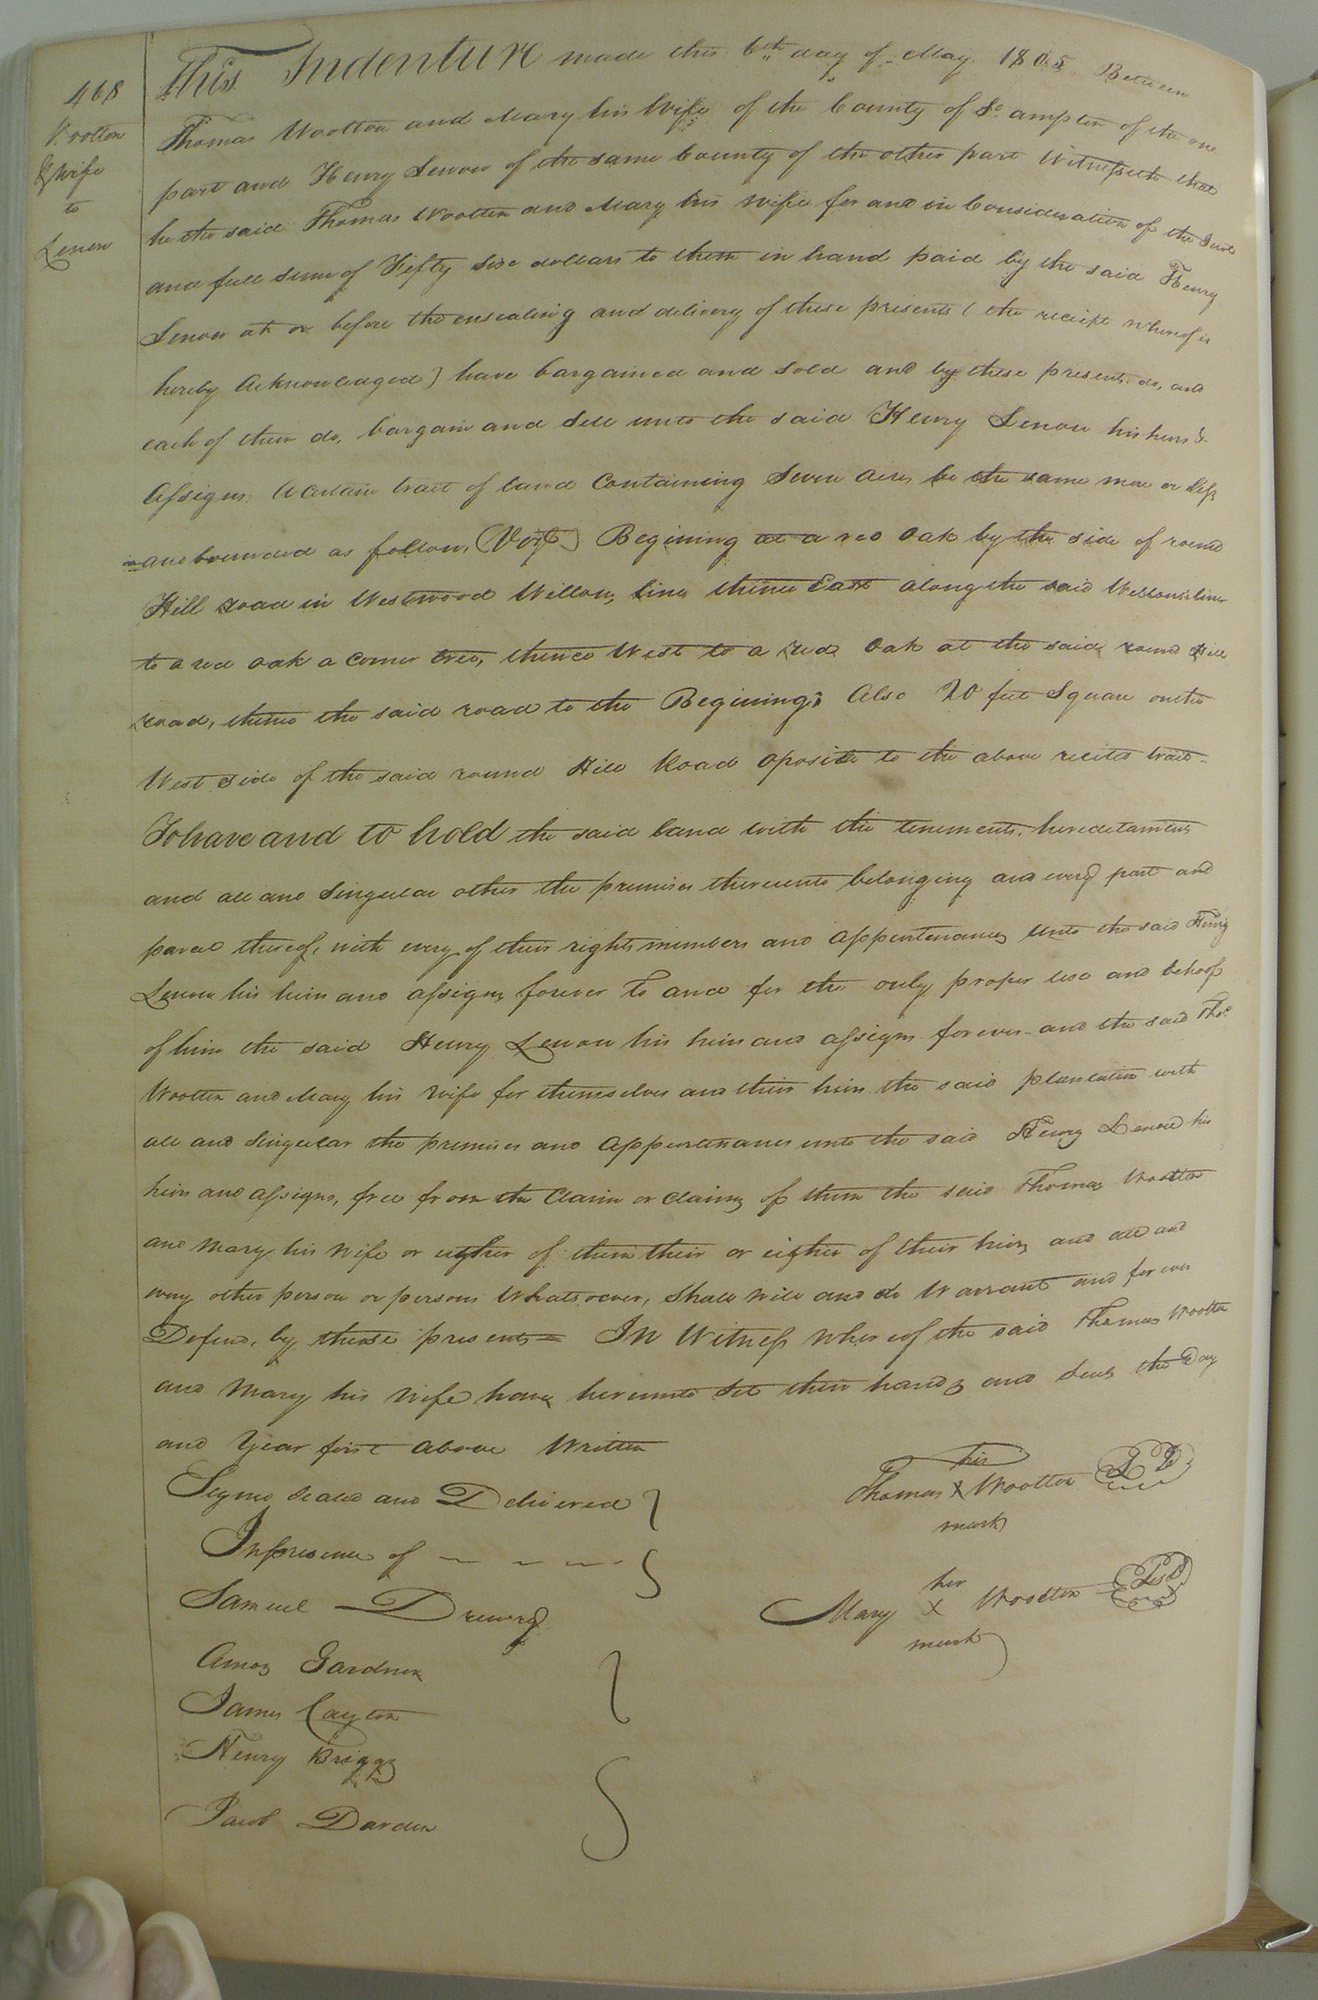 468
Wootten
& wife
to
Lenow
This Indenture made this 6th day of May 1805 Between
Thomas Wootten and Mary his Wife of the County of So. ampton of the one
part and Henry Lenow of the same County of the other part Witnesseth that
he the said Thomas Wootten and Mary his wife for and in Consideration of the Just
and full sum of Fifty Six dollars to them in hand paid by the said Henry
Lenow at or before the ensealing and delivery of these presents (the receipt whereof is
hereby Acknowledged) have bargained and sold and by these presents do, and
each of them do, bargain and Sell unto the said Henry Lenow his heirs &
Assigns, A certain tract of land Containing Seven acres, be the same more or less
and bounded as follows, (Vizt) Begining at a red Oak by the side of round
Hill road in Westwood Wellons, line, thence East along the said Wellons's line
to a red oak a corner tree, thence West to a red Oak at the said round Hill
road, thence the said road to the Begining; Also 20 feet Square on the
West Side of the said round Hill Road oposite to the above recited tract
To have and to hold the said land with the tenements, hereditaments
and all and Singular other the premises thereunto belonging and every part and
parcel thereof, with every of their rights members and appurtenances unto the said Henry
Lenow his heirs and assigns forever To and for the only proper use and behoof
of him the said Henry Lenow his heirs and assigns forever and the said Thos.
Wootten and Mary his Wife for themselves and their heirs the said plantation with
all and Singular the premises and appurtenances unto the said Henry Lenow his
heirs and assigns, free from the Claim or claims of them the said Thomas Wootten
and Mary his Wife or either of them their or either of their heirs and all and
every other person or persons Whatsoever, Shall Will and do Warrant and forever
Defend, by these presents = In Witness Whereof the said Thomas Wootten
and Mary his Wife have hereunto Set their hands and Seals the Day
and Year first above Written
Signed sealed and Delivered
In presence of
Samuel Drewry
Amos Gardner
James Clayton
Henry Briggs
Jacob Darden
his
Thomas X Wootten LS
mark
her
Mary X Wootten LS
mark